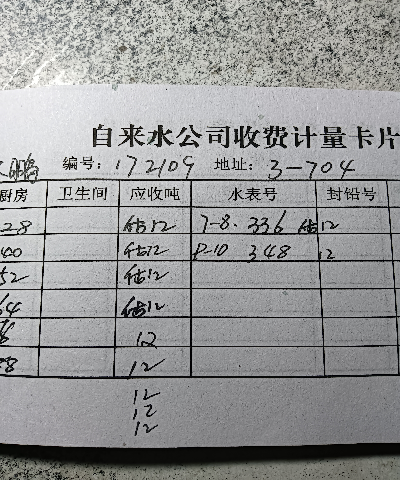 自来水公司收费计量卡片
鹏 编号: 172109 地址: 3-704
厨房 卫生间 应收吨 水表号 封铅号
28 估12 7-8. 336 估12
00 估12 8-10 348 12
52 估12
64 估12
12
88 12
12
12
12